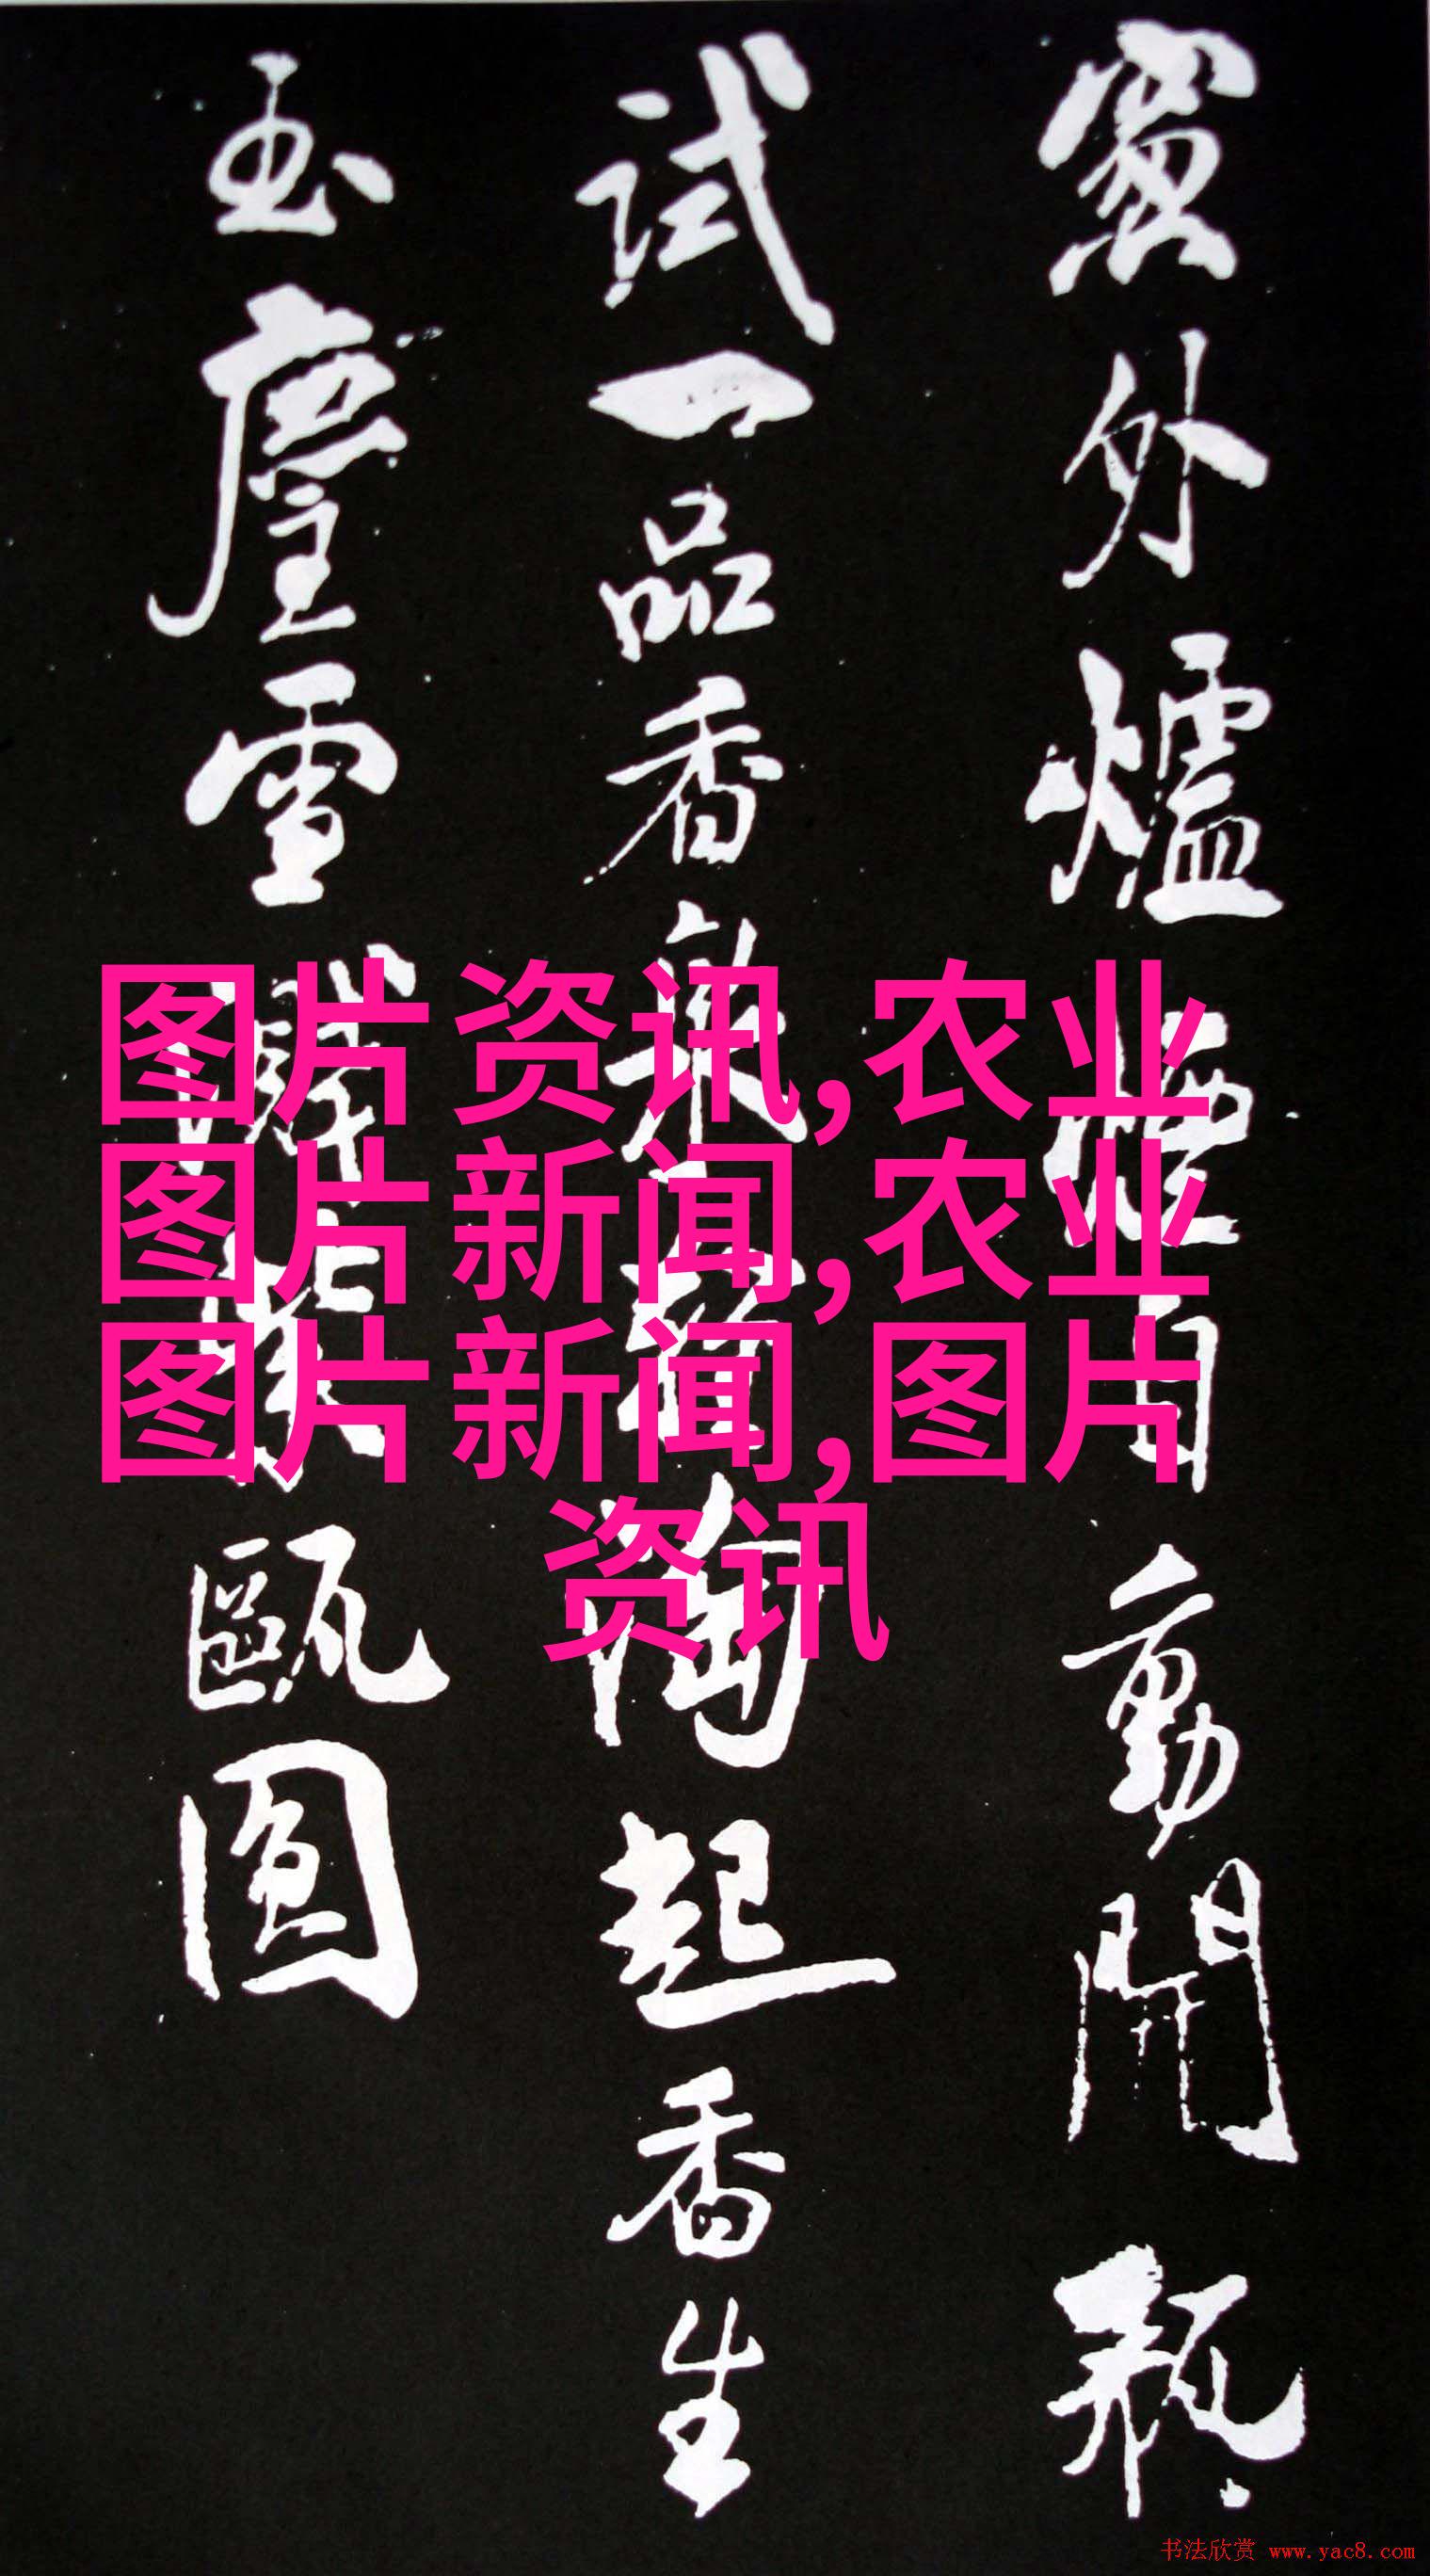 窗外爐煙自動開瓶
試一品香泉輕陶起香生
玉塵雪濺紫甌圓
图片资讯,农业
图片新闻,农业
图片新闻,图片
资讯
书法欣赏 www.yac8.com